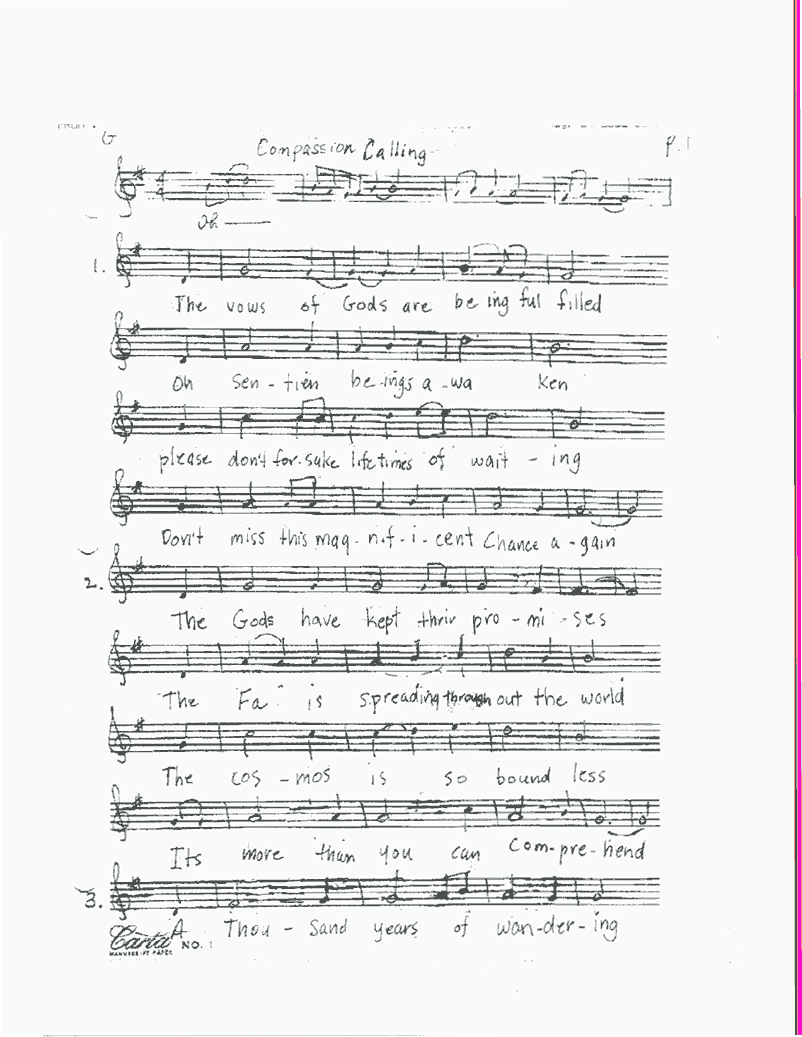 G Compassion Calling P. 1
4 4
Oh
1.
The vows of Gods are be ing ful filled
Oh Sen - tien be-ings a - wa Ken
please don't for-sake lifetimes of wait - ing
Don't miss this mag - n-f - i - cent Chance a - gain
2.
The Gods have kept thrir pro - mi - ses
The Fa is spreading through out the world
The cos - mos is so bound less
Its more than you can Com-pre-hend
3.
A Thou - Sand years of wan-der-ing
Carta NO. 1
MANUSCRIPT PAPER